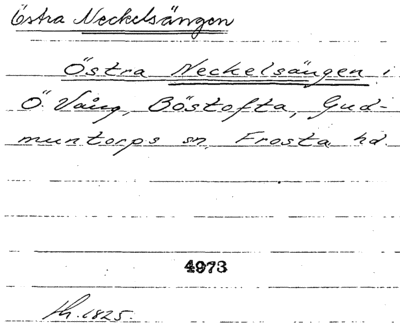 Östra Neckelsängen
Östra Neckelsängen i
Ö. Vång, Böstofta, Gud-
muntorps sn, Frosta hd.
4973
Sk. 1825.